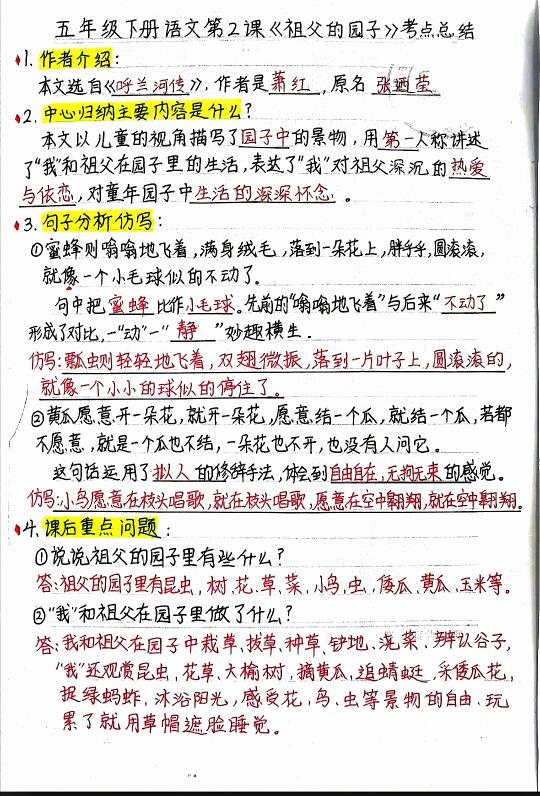 五年级下册语文第2课《祖父的园子》考点总结
1.作者介绍:
本文选自《呼兰河传》,作者是萧红,原名 张迺莹
2.中心归纳主要内容是什么?
本文以儿童的视角描写了园子中的景物,用第一人称讲述
了“我”和祖父在园子里的生活,表达了“我”对祖父深沉的热爱
与依恋,对童年园子中生活的深深怀念 。
3.句子分析仿写:
①蜜蜂则嗡嗡地飞着,满身绒毛,落到一朵花上,胖乎乎,圆滚滚,
就像一个小毛球似的不动了。
句中把 蜜蜂 比作小毛球。先前的“嗡嗡地飞着”与后来“不动了”
形成了对比,一“动”一“静”妙趣横生.
仿写:瓢虫则轻轻地飞着,双翅微振,落到一片叶子上,圆滚滚的,
就像一个小小的球似的停住了。
②黄瓜愿意开一朵花,就开一朵花,愿意结一个瓜,就结一个瓜,若都
不愿意,就是一个瓜也不结,一朵花也不开,也没有人问它。
这句话运用了拟人的修辞手法,体会到自由自在,无拘无束的感觉。
仿写:小鸟愿意在枝头唱歌,就在枝头唱歌,愿意在空中翱翔,就在空中翱翔.
4.课后重点问题:
①说说祖父的园子里有些什么?
答:祖父的园子里有昆虫,树,花.草.菜,小鸟,虫,倭瓜、黄瓜、玉米等。
②“我”和祖父在园子里做了什么?
答:我和祖父在园子中栽草、拔草、种草、铲地、浇菜、辨认谷子,
“我”还观赏昆虫,花草、大榆树,摘黄瓜,追蜻蜓,采倭瓜花,
捉绿蚂蚱,沐浴阳光,感受花,鸟、虫等景物的自由.玩
累了就用草帽遮脸睡觉。